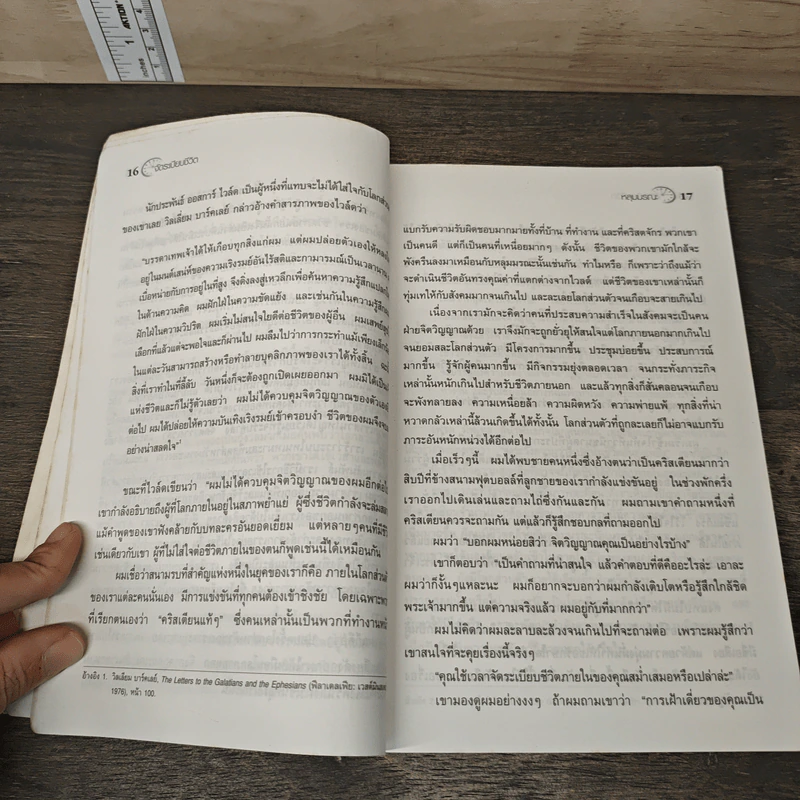 inches
1
2
3
4
16 จัดระเบียบชีวิต
นักประพันธ์ ออสการ์ ไวล์ด เป็นผู้หนึ่งที่แทบจะไม่ได้ใส่ใจกับโลกส่วน
ของเขาเลย วิลเลี่ยม บาร์คเลย์ กล่าวอ้างคำสารภาพของไวล์ดว่า
“บรรดาเทพเจ้าได้ให้เกือบทุกสิ่งแก่ผม แต่ผมปล่อยตัวเองให้หลง
อยู่ในมนต์เสน่ห์ของความเริงรมย์อันไร้สติและกามารมณ์เป็นเวลานาน
เบื่อหน่ายกับการอยู่ในที่สูง จึงดิ่งลงสู่เหวลึกเพื่อค้นหาความรู้สึก
ในด้านความคิด ผมฝักใฝ่ในความขัดแย้ง และเช่นกันในความรู้สึก
ฝักใฝ่ในความวิปริต ผมเริ่มไม่สนใจใยดีต่อชีวิตของผู้อื่น ผมเสพย์สุข
เลือกที่แล้วแต่จะพอใจและก็ผ่านไป ผมลืมไปว่าการกระทำแม้เพียงเล็ก
ในแต่ละวันสามารถสร้างหรือทำลายบุคลิกภาพของเราได้ทั้งสิ้น
สิ่งที่เราทำในที่ลี้ลับ วันหนึ่งก็จะต้องถูกเปิดเผยออกมา ผมมิได้เป็น
แห่งชีวิตและก็ไม่รู้ตัวเลยว่า ผมไม่ได้ควบคุมจิตวิญญาณของตัวเอง
ต่อไป ผมได้ปล่อยให้ความบันเทิงเริงรมย์เข้าครอบงำ ชีวิตของผมจึงจบ
อย่างน่าสลดใจ”¹
ขณะที่ไวล์ดเขียนว่า “ผมไม่ได้ควบคุมจิตวิญญาณของผมอีกต่อไป
เขากำลังอธิบายถึงผู้ที่โลกภายในอยู่ในสภาพย่ำแย่ ผู้ซึ่งชีวิตกำลังจะล่มสลาย
แม้คำพูดของเขาฟังคล้ายกับบทละครอันยอดเยี่ยม แต่หลายๆคนที่มีชี
เช่นเดียวกับเขา ผู้ที่ไม่ใส่ใจต่อชีวิตภายในของตนก็พูดเช่นนี้ได้เหมือนกัน
ผมเชื่อว่าสนามรบที่สำคัญแห่งหนึ่งในยุคของเราก็คือ ภายในโลกส่วนตัว
ของเราแต่ละคนนั่นเอง มีการแข่งขันที่ทุกคนต้องเข้าชิงชัย โดยเฉพาะ
ที่เรียกตนเองว่า “คริสเตียนแท้ๆ” ซึ่งคนเหล่านั้นเป็นพวกที่ทำงาน
อ้างอิง 1. วิลเลี่ยม บาร์คเลย์, The Letters to the Galatians and the Ephesians (ฟิลาเดลเฟีย: เวสต์มินส
1976), หน้า 100.
หลุมมรณะ 17
แบกรับความรับผิดชอบมากมายทั้งที่บ้าน ที่ทำงาน และที่คริสตจักร พวกเขา
เป็นคนดี แต่ก็เป็นคนที่เหนื่อยมากๆ ดังนั้น ชีวิตของพวกเขามักใกล้จะ
พังครืนลงมาเหมือนกับหลุมมรณะนั้นเช่นกัน ทำไมหรือ ก็เพราะว่าถึงแม้ว่า
จะดำเนินชีวิตอันทรงคุณค่าที่แตกต่างจากไวล์ด แต่ชีวิตของเขาเหล่านั้นก็
ทุ่มเทให้กับสังคมมากจนเกินไป และละเลยโลกส่วนตัวจนเกือบจะสายเกินไป
เนื่องจากเรามักจะคิดว่าคนที่ประสบความสำเร็จในสังคมจะเป็นคน
ฝ่ายจิตวิญญาณด้วย เราจึงมักจะถูกยั่วยุให้สนใจแต่โลกภายนอกมากเกินไป
จนยอมสละโลกส่วนตัว มีโครงการมากขึ้น ประชุมบ่อยขึ้น ประสบการณ์
มากขึ้น รู้จักผู้คนมากขึ้น มีกิจกรรมยุ่งตลอดเวลา จนกระทั่งภาระกิจ
เหล่านั้นหนักเกินไปสำหรับชีวิตภายนอก และแล้วทุกสิ่งก็สั่นคลอนจนเกือบ
จะพังทลายลง ความเหนื่อยล้า ความผิดหวัง ความพ่ายแพ้ ทุกสิ่งที่น่า
หวาดกลัวเหล่านี้ล้วนเกิดขึ้นได้ทั้งนั้น โลกส่วนตัวที่ถูกละเลยก็ไม่อาจแบกรับ
ภาระอันหนักหน่วงได้อีกต่อไป
เมื่อเร็วๆนี้ ผมได้พบชายคนหนึ่งซึ่งอ้างตนว่าเป็นคริสเตียนมากว่า
สิบปีที่ข้างสนามฟุตบอลล์ที่ลูกชายของเรากำลังแข่งขันอยู่ ในช่วงพักครึ่ง
เราออกไปเดินเล่นและถามไถ่ซึ่งกันและกัน ผมถามเขาคำถามหนึ่งที่
คริสเตียนควรจะถามกัน แต่แล้วก็รู้สึกชอบกลที่ถามออกไป
ผมว่า “บอกผมหน่อยสิว่า จิตวิญญาณคุณเป็นอย่างไรบ้าง”
เขาก็ตอบว่า “เป็นคำถามที่น่าสนใจ แล้วคำตอบที่ดีคืออะไรล่ะ เอาละ
ผมว่าก็งั้นๆแหละนะ ผมก็อยากจะบอกว่าผมกำลังเติบโตหรือรู้สึกใกล้ชิด
พระเจ้ามากขึ้น แต่ความจริงแล้ว ผมอยู่กับที่มากกว่า”
ผมไม่คิดว่าผมละลาบละล้วงจนเกินไปที่จะถามต่อ เพราะผมรู้สึกว่า
เขาสนใจที่จะคุยเรื่องนี้จริงๆ
“คุณใช้เวลาจัดระเบียบชีวิตภายในของคุณสม่ำเสมอหรือเปล่าล่ะ”
เขามองดูผมอย่างงงๆ ถ้าผมถามเขาว่า “การเฝ้าเดี่ยวของคุณเป็น